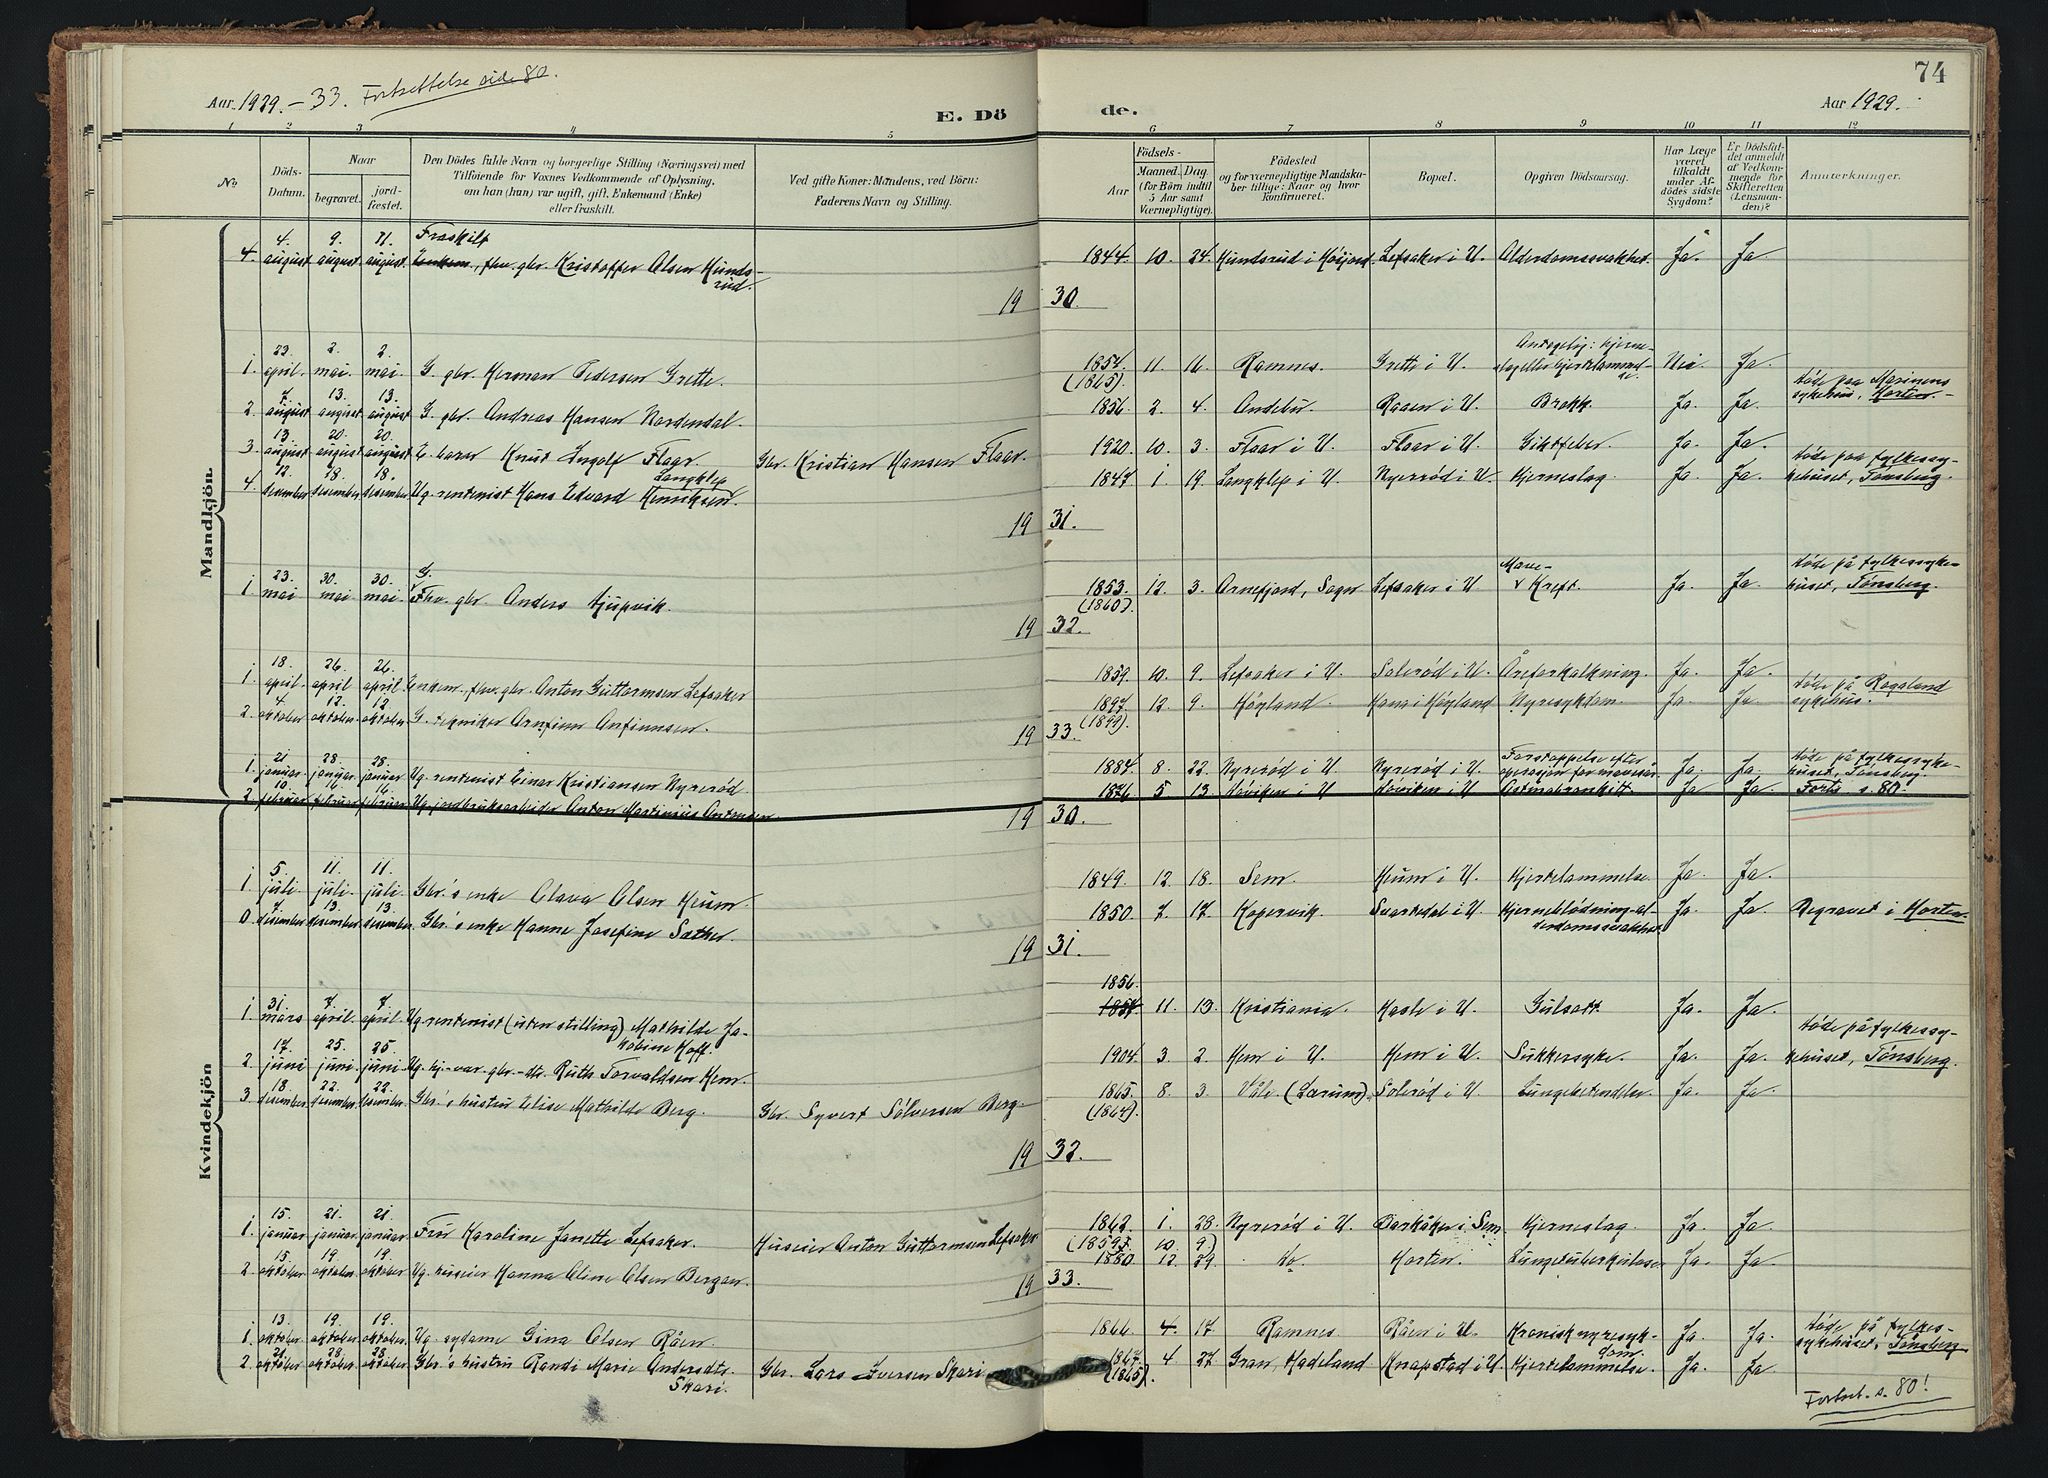 74
Aar 1929.-33. Fortsettelse side 80.
E. Dö
de.
Aar 1929.
1 2 3 4 5 6 7 8 9 10 11 12
No.
Döds-Datum.
Naar
begravet.
jord-fæstet.
Den Dödes fulde Navn og borgerlige Stilling (Næringsvei) med
Tilföiende for Voxnes Vedkommende af Oplysning,
om han (hun) var ugift, gift, Enkemand (Enke)
eller fraskilt.
Ved gifte Koner: Mandens, ved Börn:
Faderens Navn og Stilling.
Födsels-
Aar
Maaned. Dag.
(for Börn indtil
5 Aar samt
Værnepligtige).
Födested
og for værnepligtige Mandska-
ber tillige: Naar og hvor
konfirmeret.
Bopæl.
Opgiven Dödsaarsag.
Har Læge
været
tilkaldt
under Af-
dödes sidste
Sygdom?
Er Dödsfal-
det anmeldt
af Vedkom-
mende for
Skifteretten
(Lensman-
den)?
Anmærkninger.
Mandkjön.
4. 4. august 9. august 11. august. Fraskilt Enkem., fhv. gbr. Kristoffer Olsen Hunds-rud. 1844. 10. 24. Hundsrud i Høijord Lefsaker i U. Alderdomssvakhet. Ja. Ja
19 30.
1. 23. april. 2. mai. 2. mai. G. gbr. Herman Pedersen Grette. 1854. (1865). 11. 16. Ramnes. Grette i U. Antagelig: hjerne-slag eller hjertelammel-se. Nei Ja.
2. 7. august 13. august 13. august G. gbr. Andreas Hansen Nordendal. 1856. 2. 4. Andebu. Raaen i U. Brokk. Ja. Ja. døde paa Marinens sykehus, Horten.
3. 13. august 20. august 20. august Knut Ingolf Flaar. Gbr. Kristian Hansen Flaar. 1920. 10. 3. Flaar i U. Flaar i U. Giktfeber. Ja. Ja.
4. 12. desember 18. desember 18. desember Ug. rentenist Hans Edvard Langklep Henriksen. 1847. 1. 19. Langklep i U. Nyrerød i U. Hjerneslag. Ja. Ja. døde paa fylkessy-kehuset, Tønsberg.
19 31.
1. 23. mai 30. mai 30. mai. G. Fhv. gbr. Anders Djupvik. 1853. (1860). 12. 3. Arnefjord, Sogn Lefsaker i U. Mave-v Kreft. Ja. Ja. døde på fylkessyke-huset, Tønsberg.
19 32.
1. 18. april. 26. april 26. april Enkem., fhv. gbr. Anton Guttormsen Lefsaker 1859. 10. 9. Lefsaker i U. Solerød i U. Åreforkalkning. Ja. Ja.
2. 4. oktober 12. oktober 12. oktober G. tekniker Arnfinn Anfinnsen. 1897. (1899). 12. 9. Høyland. Hana i Høyland Nyresykdom. Ja. Ja. døde på Rogaland sykehus.
19 33.
1. 21. januar. 28. januar. 28. januar Ug. rentenist Einar Kristiansen Nyrerød 1884. 8. 22. Nyrerød i U. Nyrerød i U. Forstoppelse efter operasjon for mavesår. Ja. Ja. døde på fylkessyke-huset, Tønsberg.
2. 10. februar 16. februar 16. februar Ug. jordbruksarbeider Anton Martinius Antonsen 1876. 5. 13. Ja Ja. Forts. s. 80.
Kvindekjön
19 30.
1. 5. juli. 11. juli. 11. juli. Gbr.'s enke Olava Olsen Heum. 1849. 12. 18. Sem. Heum i U. Hjertelammelse Ja. Ja.
0. 7. desember 13. desember. 13. desember. Gbr.'s enke Hanne Josefine Sæther. 1850. 7. 17. Kopervik. Svartedal i U. Hjerneblødning-al-derdomssvakhet Ja. Ja. Begravet i Horten.
19 31.
1. 31. mars 7. april. 7. april. Ug. rentenist (uten stilling) Mathilde Ja-kobine Hoff. 1856. 1857. 11. 13. Kristiania. Hasle i U. Gulsott. Ja. Ja.
2. 17. juni 25. juni 25. juni Ug. hj.-vær. gbr.-dtr. Ruth Torvaldsen Hem. 1904. 3. 2. Hem i U. Hem i U. Sukkersyke. Ja. Ja. døde på fylkessy-kehuset, Tønsberg.
3. 18. desember 22. desember 22. desember. Gbr.'s hustru Elise Mathilde Berg. Gbr. Syvert Sølversen Berg. 1865. (1864). 8. 3. Våle (Lærum). Solerød i U. Lungebetendelse. Ja. Ja
19 32.
1. 15. januar 21. januar. 21. januar. Fru Karoline Janette Lefsaker. Huseier Anton Guttormsen Lefsaker 1862. (1859. 10. 9.) 1. 28. Nyrerød i U. Barkåker i Sem. Hjerneslag. Ja. Ja
2. 15. oktober 19. oktober 19. oktober Ug. huseier Hanna Oline Olsen Bergan. 1880. 12. 29. Do. Horten. Lungetuberkulose Ja. Ja
19 33.
1. 13. oktober 19. oktober. 19. oktober. Ug. sydame Gina Olsen Råen. 1866. 4. 17. Ramnes. Råen i U. Kronisk nyresyk-dom. Ja. Ja. døde på fylkes-sykehuset, Tønsberg
2. 21. oktober 28. oktober. 28. oktober. Gbr.'s hustru Randi Marie Andersdtr. Skari. Gbr. Lars Iversen Skari 1867. (1865). 4. 27. Gran, Hadeland Knapstad i U. Hjertelammelse. Ja. Ja
Fortset. s. 80!